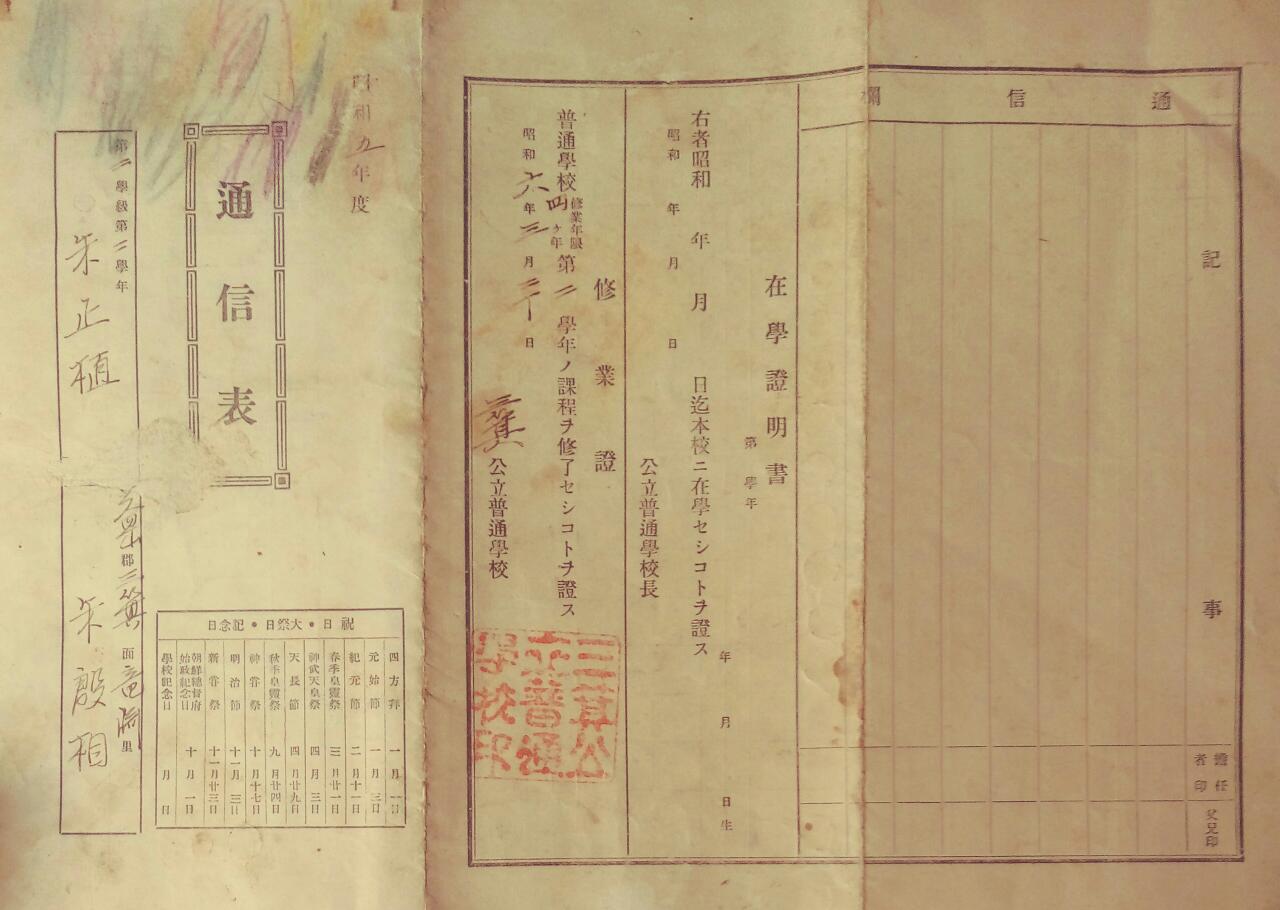 通信欄
記事
擔任者印
父兄印
在學證明書
第 學年
年 月 日生
右者昭和 年 月 日迄本校ニ在學セシコトヲ證ス
昭和 年 月 日
公立普通學校長
修業證
普通學校修業年限四ケ年第二學年ノ課程ヲ修了セシコトヲ證ス
昭和六年三月二十日
三箕公立普通學校
三箕公立普通學校印
昭和五年度
通信表
第二學級第二學年
朱正植
郡三箕面竜渕里
朱殷相
祝日・大祭日・記念日
四方拜 一月一日
元始節 一月三日
紀元節 二月十一日
春季皇靈祭 三月廿一日
神武天皇祭 四月三日
天長節 四月廿九日
秋季皇靈祭 九月廿四日
神甞祭 十月十七日
明治節 十一月三日
新甞祭 十一月廿三日
朝鮮總督府始政記念日 十月一日
學校記念日 月 日